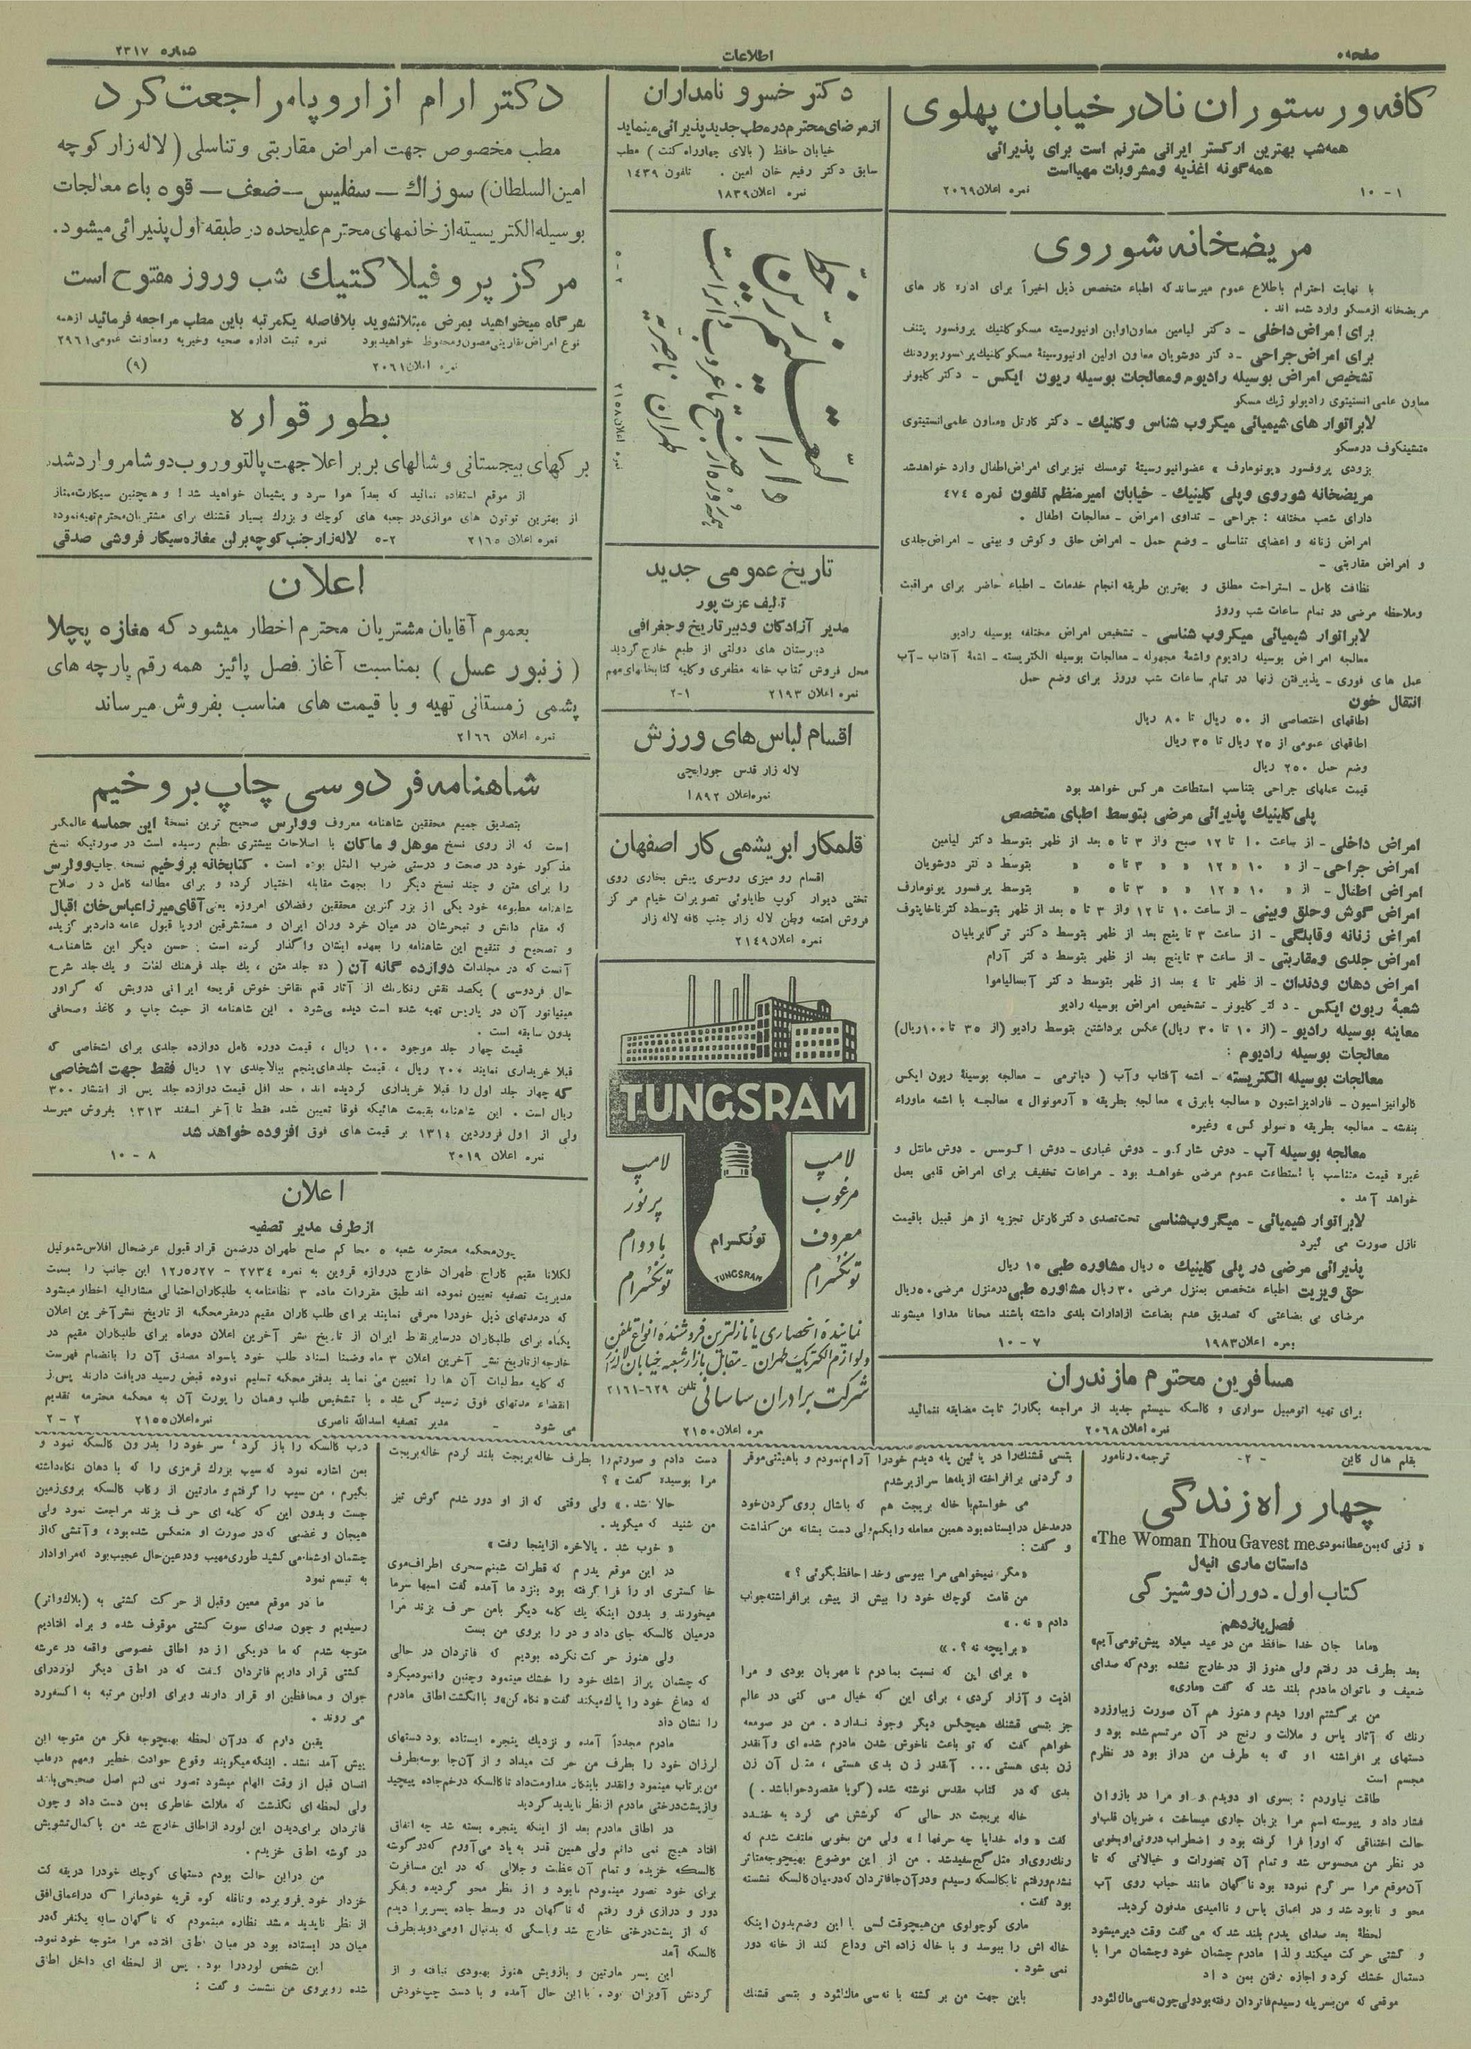 صفحه ۵
اطلاعات
شماره ۲۳۱۷
کافه ورستوران نادر خیابان پهلوی
همه‌شب بهترین ارکستر ایرانی مترنم است برای پذیرائی
همه‌گونه اغذیه ومشروبات مهیااست
۱ - ۱۰ نمره اعلان ۲۰۶۹
مریضخانه شوروی
با نهایت احترام باطلاع عموم میرساندکه اطباء متخصص ذیل اخیراً برای اداره کار های
مریضخانه ازمسکو وارد شده اند .
برای امراض داخلی - دکتر لیامین معاون‌اولین اونیورسیته مسکو کلنیك پرفسور پتنف
برای امراض جراحی - دکتر دوشویان معاون اولین اونیورسیتهٔ مسکو کلنیك پرفسور بوردنك
تشخیص امراض بوسیله رادیوم ومعالجات بوسیله ریون ایکس - دکتر کلیونر
معاون علمی انستیتوی رادیولوژیك مسکو
لابراتوار های شیمیائی میکروب شناس وکلنیك - دکتر کارتل معاون علمی انستیتوی
متشینکوف درمسکو
بزودی پروفسور «یونومارف» عضو انیورسیتهٔ تومسك نیز برای امراض اطفال وارد خواهدشد
مریضخانه شوروی وپلی کلینیك - خیابان امیرمنظم تلفون نمره ۴۷۴
دارای شعب مختلفه : جراحی - تداوی امراض - معالجات اطفال .
امراض زنانه و اعضای تناسلی - وضع حمل - امراض حلق و گوش و بینی - امراض جلدی
و امراض مقاربتی -
نظافت کامل - استراحت مطلق و بهترین طریقه انجام خدمات - اطباء حاضر برای مراقبت
وملاحظه مرضی در تمام ساعات شب وروز
لابراتوار شیمیائی میکروب شناسی - تشخیص امراض مختلفه بوسیله رادیو
معالجه امراض بوسیله رادیوم واشعهٔ مجهوله - معالجات بوسیله الکتریسته - اشعهٔ آفتاب - آب
عمل های فوری - پذیرفتن زنها در تمام ساعات شب وروز برای وضع حمل
انتقال خون
اطاقهای اختصاصی از ۵۰ ریال تا ۸۰ ریال
اطاقهای عمومی از ۲۵ ریال تا ۳۵ ریال
وضع حمل ۲۵۰ ریال
قیمت عملهای جراحی بتناسب استطاعت هرکس خواهد بود
پلی‌کلاینیك پذیرائی مرضی بتوسط اطبای متخصص
امراض داخلی - از ساعت ۱۰ تا ۱۲ صبح واز ۳ تا ۵ بعد از ظهر بتوسط دکتر لیامین
امراض جراحی - از » ۱۰ » ۱۲ » » ۳ تا ۵ » بتوسط دکتر دوشویان
امراض اطفال - از » ۱۰ » ۱۲ » » ۳ تا ۵ » بتوسط پرفسور یونومارف
امراض گوش وحلق وبینی - از ساعت ۱۰ تا ۱۲ واز ۳ تا ۵ بعد از ظهر بتوسط دکتر
امراض زنانه وقابلگی - از ساعت ۳ تا پنج بعد از ظهر بتوسط دکتر ترگابریلیان
امراض جلدی ومقاربتی - از ساعت ۳ تا پنج بعد از ظهر بتوسط دکتر آرام
امراض دهان ودندان - از ظهر تا ۴ بعد از ظهر بتوسط دکتر
شعبهٔ ریون ایکس - دکتر کلیونر - تشخیص امراض بوسیله رادیو
معاینه بوسیله رادیو - (از ۱۰ تا ۳۰ ریال) عکس برداشتن بتوسط رادیو (از ۳۵ تا ۱۰۰ ریال)
معالجات بوسیله رادیوم :
معالجات بوسیله الکتریسته - اشعه آفتاب وآب ( دیاترمی - معالجه بوسیلهٔ ریون ایکس
گالوانیزاسیون - فارادیزاسیون «معالجه بابرق» معالجه بطریقه «آرسونوال» معالجه با اشعه ماوراء
بنفشه - معالجه بطریقه «سولوکس» وغیره
معالجه بوسیله آب - دوش شارکو - دوش غباری - دوش
غیره قیمت متناسب با استطاعت عموم مرضی خواهد بود - مراعات تخفیف برای امراض قلبی بعمل
خواهد آمد .
لابراتوار شیمیائی - میکروب‌شناسی تحت‌تصدی دکتر کارتل تجزیه از هر قبیل باقیمت
نازل صورت می گیرد
پذیرائی مرضی در پلی کلینیك ۵ ریال مشاوره طبی ۱۵ ریال
حق ویزیت اطباء متخصص بمنزل مرضی ۳۰ ریال مشاوره طبی درمنزل مرضی ۵۰ ریال
مرضای بی بضاعتی که تصدیق عدم بضاعت ازادارات بلدی داشته باشند مجانا مداوا میشوند
نمره اعلان ۱۹۸۳ ۷ - ۱۰
مسافرین محترم مازندران
برای تهیه اتومبیل سواری و کالسکه سیستم جدید از مراجعه بگاراژ ثابت مضایقه ننمائید
نمره اعلان ۲۰۶۸
دکتر خسرو نامداران
ازمرضای محترم در مطب جدید پذیرائی مینماید
خیابان حافظ (بالای چهارراه کنت) مطب
سابق دکتر رفیع خان امین . تلفون ۱۴۳۹
نمره اعلان ۱۸۳۹
۲ - ۵
نمره اعلان ۲۱۵۸
تاریخ عمومی جدید
تألیف عزت پور
مدیر آزادگان ودبیر تاریخ وجغرافی
دبیرستان های دولتی از طبع خارج گردید
محل فروش کتاب خانه مظفری وکلیه کتابخانهای مهم
نمره اعلان ۲۱۹۳ ۱-۲
اقسام لباس‌های ورزش
لاله زار قدس جورابچی
نمره اعلان ۱۸۹۲
قلمکار ابریشمی کار اصفهان
اقسام رو میزی روسری پیش بخاری روی
تختی دیوار کوپ طابلوئی تصویرات خیام مرکز
فروش امتعه وطن لاله زار جنب کافه لاله زار
نمره اعلان ۲۱۴۹
TUNGSRAM
لامپ مرغوب معروف تونگسرام
لامپ پرنور بادوام تونگسرام
تونگسرام
TUNGSRAM
نماینده انحصاری با نازلترین فروشنده انواع تلفن
ولوازم الکتریك طهران - مقابل بازار شعبه خیابان لاله‌زار
شرکت برادران ساسانی تلفن ۶۲۹-۲۱۶۱
نمره اعلان ۲۱۵۰
دکتر ارام از اروپا مراجعت کرد
مطب مخصوص جهت امراض مقاربتی و تناسلی ( لاله زار کوچه
امین السلطان) سوزاك - سفلیس - ضعف - قوه باء معالجات
بوسیله الکتریسیته از خانمهای محترم علیحده در طبقه اول پذیرائی میشود.
مرکز پروفیلاکتیك شب وروز مفتوح است
هرگاه میخواهید بمرض مبتلا نشوید بلافاصله یکمرتبه باین مطب مراجعه فرمائید ازهمه
نوع امراض مقاربتی مصون ومحفوظ خواهید بود نمره ثبت اداره صحیه وخیریه ومعاونت عمومی ۲۹۶۱
نمره اعلان ۲۰۶۱ (۹)
بطور قواره
برگهای بیجستانی و شالهای بربر اعلا جهت پالتو وروب دوشامر واردشد.
از موقع استفاده نمائید که بعداً هوا سرد و پشیمان خواهید شد! و همچنین سیگارت ممتاز
از بهترین توتون های موازی در جعبه های کوچك و بزرك بسیار قشنك برای مشتریان محترم تهیه نموده
نمره اعلان ۲۱۶۵ ۲-۵ لاله زار جنب کوچه برلن مغازه سیکار فروشی صدقی
اعلان
بعموم آقایان مشتریان محترم اخطار میشود که مغازه پچلا
( زنبور عسل ) بمناسبت آغاز فصل پائیز همه رقم پارچه های
پشمی زمستانی تهیه و با قیمت های مناسب بفروش میرساند
نمره اعلان ۲۱۶۶
شاهنامه فردوسی چاپ بروخیم
بتصدیق جمیع محققین شاهنامه معروف وولرس صحیح ترین نسخهٔ این حماسه عالمگیر
است که از روی نسخ موهل و ماکان با اصلاحات بیشتری بطبع رسیده است در صورتیکه نسخ
مذکور خود در صحت و درستی ضرب المثل بوده است . کتابخانه بروخیم نسخه چاپ وولرس
را برای متن و چند نسخ دیگر را بجهت مقابله اختیار کرده و برای مطالعه کامل در صلاح
شاهنامه مطبوعه خود یکی از بزرگترین محققین وفضلای امروزه یعنی آقای میرزا عباس خان اقبال
که مقام دانش و تبحرشان در میان خرد وران ایران و مستشرقین اروپا قبول عامه دارد برگزیده
و تصحیح و تنقیح این شاهنامه را بعهده ایشان واگذار کرده است . حسن دیگر این شاهنامه
آنست که در مجلدات دوازده گانه آن ( ده جلد متن ، یك جلد فرهنك لغات و یك‌جلد شرح
حال فردوسی ) یکصد نقش رنگارنك از آثار قلم نقاش خوش قریحه ایرانی درویش که گراور
مینیاتور آن در پاریس تهیه شده است دیده می‌شود . این شاهنامه از حیث چاپ و کاغذ وصحافی
بدون سابقه است .
قیمت چهار جلد موجود ۱۰۰ ریال ، قیمت دوره کامل دوازده جلدی برای اشخاصی که
قبلا خریداری نمایند ۲۰۰ ریال ، قیمت جلدهای پنجم ببالا جلدی ۱۷ ریال فقط جهت اشخاصی
که چهار جلد اول را قبلا خریداری گردیده اند ، حد اقل قیمت دوازده جلد پس از انتشار ۳۰۰
ریال است . این شاهنامه بقیمت هائیکه فوقا تعیین شده فقط تا آخر اسفند ۱۳۱۳ بفروش میرسد
ولی از اول فروردین ۱۳۱۴ بر قیمت های فوق افزوده خواهد شد
نمره اعلان ۲۰۱۹ ۸ - ۱۰
اعلان
ازطرف مدیر تصفیه
چون‌محکمه محترمه شعبه ۵ محاکم صلح طهران درضمن قرار قبول عرضحال افلاس شموئیل
لکلانا مقیم گاراج طهران خارج دروازه قزوین به نمره ۲۷۳۴ - ۲۷ر۵ر۱۲ این جانب را بسمت
مدیریت تصفیه تعیین نموده اند طبق مقررات ماده ۳ نظامنامه به طلبکاران احتمالی مشارالیه اخطار میشود
که درمدتهای ذیل خودرا معرفی نمایند برای طلب کاران مقیم درمقر محکمه از تاریخ نشر آخرین اعلان
یکماه برای طلبکاران درسایر نقاط ایران از تاریخ نشر آخرین اعلان دوماه برای طلبکاران مقیم در
خارجه از تاریخ نشر آخرین اعلان ۳ ماه وضمنا اسناد طلب خود یاسواد مصدق آن را بانضمام فهرست
که کلیه مطالبات آن ها را تعیین می نماید بدفتر محکمه تسلیم نموده قبض رسید دریافت دارند پس از
انقضاء مدتهای فوق رسیدگی شده با تشخیص طلب وهمان را پورت آن به محکمه محترمه تقدیم
می شود - مدیر تصفیه اسدالله ناصری نمره اعلان ۲۱۵۵ ۲ - ۲
بقلم هال کاین - ۲- ترجمه ر.نامور
چهار راه زندگی
« زنی که بمن عطا نمودی The Woman Thou Gavest me»
داستان ماری انیل
کتاب اول - دوران دوشیزگی
فصل یازدهم
«ماما جان خدا حافظ من در عید میلاد پیش تومی آیم»
بعد بطرف در رفتم ولی هنوز از در خارج نشده بودم که صدای
ضعیف و ناتوان مادرم بلند شد که گفت «ماری»
من برگشتم اورا دیدم و هنوز هم آن صورت زیبا وزرد
رنك که آثار یاس و ملالت و رنج در آن مرتسم شده بود و
دستهای بر افراشته او که به طرف من دراز بود در نظرم
مجسم است
طاقت نیاوردم : بسوی او دویدم و او مرا در بازوان
فشار داد و پیوسته اسم مرا بزبان جاری میساخت ، ضربان قلب او
حالت اختناقی که اورا فرا گرفته بود و اضطراب درونی او بخوبی
در نظر من محسوس شد و تمام آن تصورات و خیالاتی که تا
آن‌موقع مرا سر گرم نموده بود ناگهان مانند حباب روی آب
محو و نابود شد و در اعماق یاس و ناامیدی مدفون گردید.
لحظهٔ بعد صدای پدرم بلند شد که می گفت وقت دیرمیشود
و گشتی حرکت میکند و لذا مادرم چشمان خود وچشمان مرا با
دستمال خشك کرد و اجازه رفتن بمن داد
موقعی که من بسر پله رسیدم فاتردان رفته بود ولی چون نه‌سی ماك لئود و
بتسی قشنك را در پائین پله دیدم خودرا آرام نمودم و باهیئتی موقر
و گردنی برافراخته از پله‌ها سرازیر شدم
می خواستم با خاله بریجت هم که باشال روی گردن خود
درمدخل درایستاده بود همین معامله را بکنم ولی دست بشانه من گذاشت
و گفت :
«مگر نمیخواهی مرا ببوسی وخدا حافظ بگوئی ؟ »
من قامت کوچك خود را بیش از پیش برافراشته جواب
دادم « نه . »
« برایچه نه ؟ . »
« برای این که نسبت بمادرم نامهربان بودی و مرا
اذیت و آزار کردی ، برای این که خیال می کنی در عالم
جز بتسی قشنك هیچکس دیگر وجود ندارد . من در صومعه
خواهم گفت که تو باعث ناخوش شدن مادرم شده ای وآنقدر
زن بدی هستی ... آنقدر زن بدی هستی ، مثل آن زن
بدی که در کتاب مقدس نوشته شده (گویا مقصود حوا باشد . )
خاله بریجت در حالی که کوشش می کرد به خنده
گفت « واه خدایا چه حرفها ! » ولی من بخوبی ملتفت شدم که
رنك‌روی او مثل گچ سفید شد . من از این موضوع بهیچوجه متاثر
نشدم ورفتم تا بکالسکه رسیدم ودر آن‌جا فاتردان که درمیان کالسکه نشسته
بود گفت .
ماری کوچولوی من هیچوقت کسی با این وضع بدون اینکه
خاله اش را ببوسد و با خاله زاده اش وداع کند از خانه دور
نمی شود .
باین جهت من بر گشته با نه سی ماك‌لئود و بتسی قشنك
دست دادم و صورتم را بطرف خاله بریجت بلند کردم خاله بریجت
مرا بوسیده گفت « ؟
حالا شد . » ولی وقتی که از او دور شدم گوش تیز
من شنید که میگوید .
« خوب شد . بالاخره ازاینجا رفت »
در این موقع پدرم که قطرات شبنم سحری اطراف موی
خاکستری او را فرا گرفته بود بنزد ما آمده گفت اسبها سرما
میخورند و بدون اینکه یك کلمه دیگر بامن حرف بزند مرا
درمیان کالسکه جای داد و در را بروی من بست
ولی هنوز حرکت نکرده بودیم که فاتردان در حالی
که چشمان پراز اشك خود را خشك مینمود وچنین وانمود میکرد
که دماغ خود را پاك میکند گفت «نگاه کن» و باانگشت اطاق مادرم
را نشان داد
مادرم مجدداً آمده و نزدیك پنجره ایستاده بود دستهای
لرزان خود را بطرف من حرکت میداد و از آن‌جا بوسه بطرف
من پرتاب مینمود وانقدر باینکار مداومت داد تا کالسکه درخم جاده پیچید
واز پشت درختی مادرم از نظر ناپدید گردید
در اطاق مادرم بعد از اینکه پنجره بسته شد چه اتفاق
افتاد هیچ نمی دانم ولی همین قدر به یاد می‌آورم که در گوشه
کالسکه خزیده و تمام آن عظمت و جلالی که در این مسافرت
برای خود تصور مینمودم نابود و از نظر محو گردیده و بفکر
دور و درازی فرو رفتم که ناگهان در وسط جاده پسر برا دیدم
که از پشت درختی خارج شد وباسگی که بدنبال او می دوید بطرف
کالسکه آمد
این پسر مارتین و بازویش هنوز بهبودی نیافته و از
گردنش آویزان بود . با این حال آمده و با دست چپ خودش
درب کالسکه را باز کرد ، سر خود را بدرون کالسکه نمود و
بمن اشاره نمود که سیب بزرك قرمزی را که با دهان نگاه داشته
بگیرم . من سیب را گرفتم و مارتین از رکاب کالسکه بروی زمین
جست و بدون این که کلمه ای حرف بزند مراجعت نمود ولی
هیجان و غضبی که در صورت او منعکس شده بود ، و آتشی که از
چشمان او شعله می کشید طوری مهیب ودرعین حال عجیب بود که مرا وادار
به تبسم نمود
ما در موقع معین وقبل از حرکت کشتی به (بلاك‌واتر)
رسیدیم و چون صدای سوت کشتی موقوف شده و براه افتادیم
متوجه شدم که ما دریکی از دو اطاق خصوصی واقعه در عرشه
کشتی قرار داریم فاتردان گفت که در اطاق دیگر لورد رای
جوان و محافظین او قرار دارند وبرای اولین مرتبه به اکسفورد
می روند .
یقین دارم که در آن لحظه بهیچوجه فکر من متوجه این
پیش آمد نشد . اینکه میگویند وقوع حوادث خطیر ومهم درقلب
انسان قبل از وقت الهام میشود تصور نمی کنم اصل صحیحی باشد
ولی لحظه ای نگذشت که ملالت خاطری بمن دست داد و چون
فاتردان برای دیدن این لورد ازاطاق خارج شد من با کمال تشویش
در گوشه اطاق خزیدم .
من دراین حالت بودم دستهای کوچك خودرا در یقه کت
خزدار خود فرو برده وقافله کوه قریه خودمانرا که در اعماق افق
از نظر ناپدید میشد نظاره مینمودم که ناگهان سایه یکنفر که در
میان در ایستاده بود در میان اطاق افتاده مرا متوجه خود نمود.
این شخص لورد را بود . پس از لحظه ای داخل اطاق
شده روبروی من نشست و گفت :